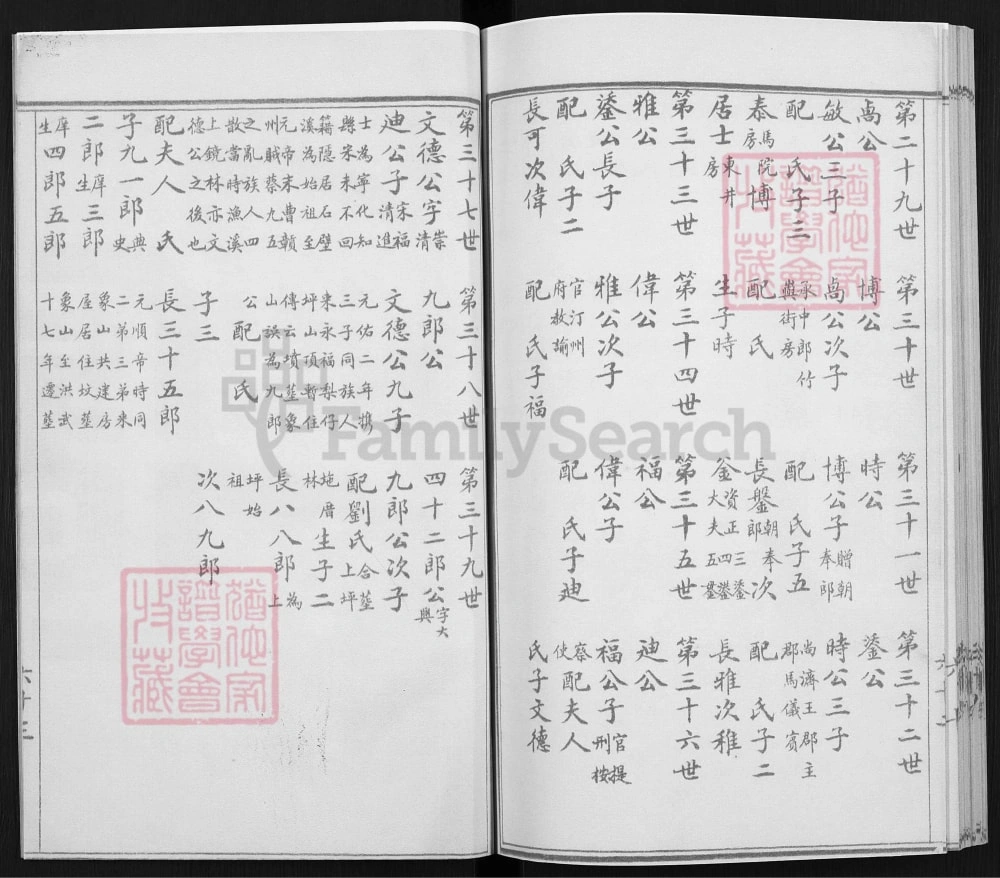 第二十九世
卨公
敏公三子
配　氏子三
泰馬院房博
居士東井房
第三十世
博公
卨公次子
承中郎竹
輿街房
配　氏
生子時
第三十一世
時公
博公子贈朝奉郎
配　氏子五
長鏧朝奉郎次
釜資正大夫三鍌四鎣五
第三十二世
鍌公
時公三子
尚濟王郡主
郡馬儀賓
配　氏子二
長雅次稚
第三十三世
雅公
鍌公長子
配　氏子二
長可次偉
第三十四世
偉公
雅公次子
官汀州
府教諭
配　氏子福
第三十五世
福公
偉公子
配　氏子迪
第三十六世
迪公
福公子官提刑按
察使配夫人
氏子文德
第三十七世
文德公字崇清
迪公子宋福清進
士為寧化知
縣宋末不回
籍隱居石壁
溪為始祖至
元帝末曹贛
州賊蔡九五
之亂族人四
散當時漁溪
上鏡林亦文
德公之後也
配夫人　氏
子九一郎典史
二郎庠生三郎
庠生四郎五郎
第三十八世
九郎公
文德公九子
元佑二年攜
三子同族人
來永福梨仔
坪山頂暫住
傳云墳葬象
山誤為九郎
公配　氏
子三
長三十五郎
元順帝時同
二弟三弟來
象山共建房
屋居住墳葬
象山至洪武
十七年遷葬
第三十九世
四十二郎公字大興
九郎公次子
配劉氏合葬上坪
地厝林生子二
長八八郎為上
坪始祖
次八九郎
六十三